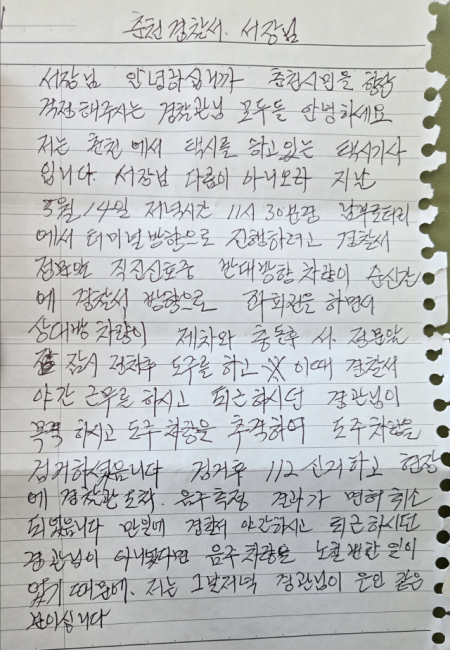 춘천경찰서. 서장님
서장님 안녕하십니까 춘천시민을 항상
걱정해주시는 경찰관님 모두들 안녕하세요
저는 춘천에서 택시를 하고있는 택시기사
입니다. 서장님 다름이 아니오라 지난
5월 14일 저녁시간 11시 30분경 남부로터리
에서 터미널방향으로 진행하려고 경찰서
정문앞 직진신호중 반대방향 차량이 순식간
에 경찰서 방향으로 좌회전을 하면서
상대방 차량이 제차와 충돌후 서. 정문앞
잠시 정차후 도주를 하고 이때 경찰서
야간 근무를 하시고 퇴근하시던 경관님이
목격 하시고 도주차량을 추격하여 도주차량을
검거하셨습니다 검거후 112 신고하고 현장
에 경찰관 도착. 음주측정 결과가 면허취소
되었습니다 만일에 경찰서 야간하시고 퇴근하시던
경관님이 아니였다면 음주차량을 노칠뻔한 일이
였기 때문에. 저는 그날저녁 경관님이 은인 같은
분이십니다